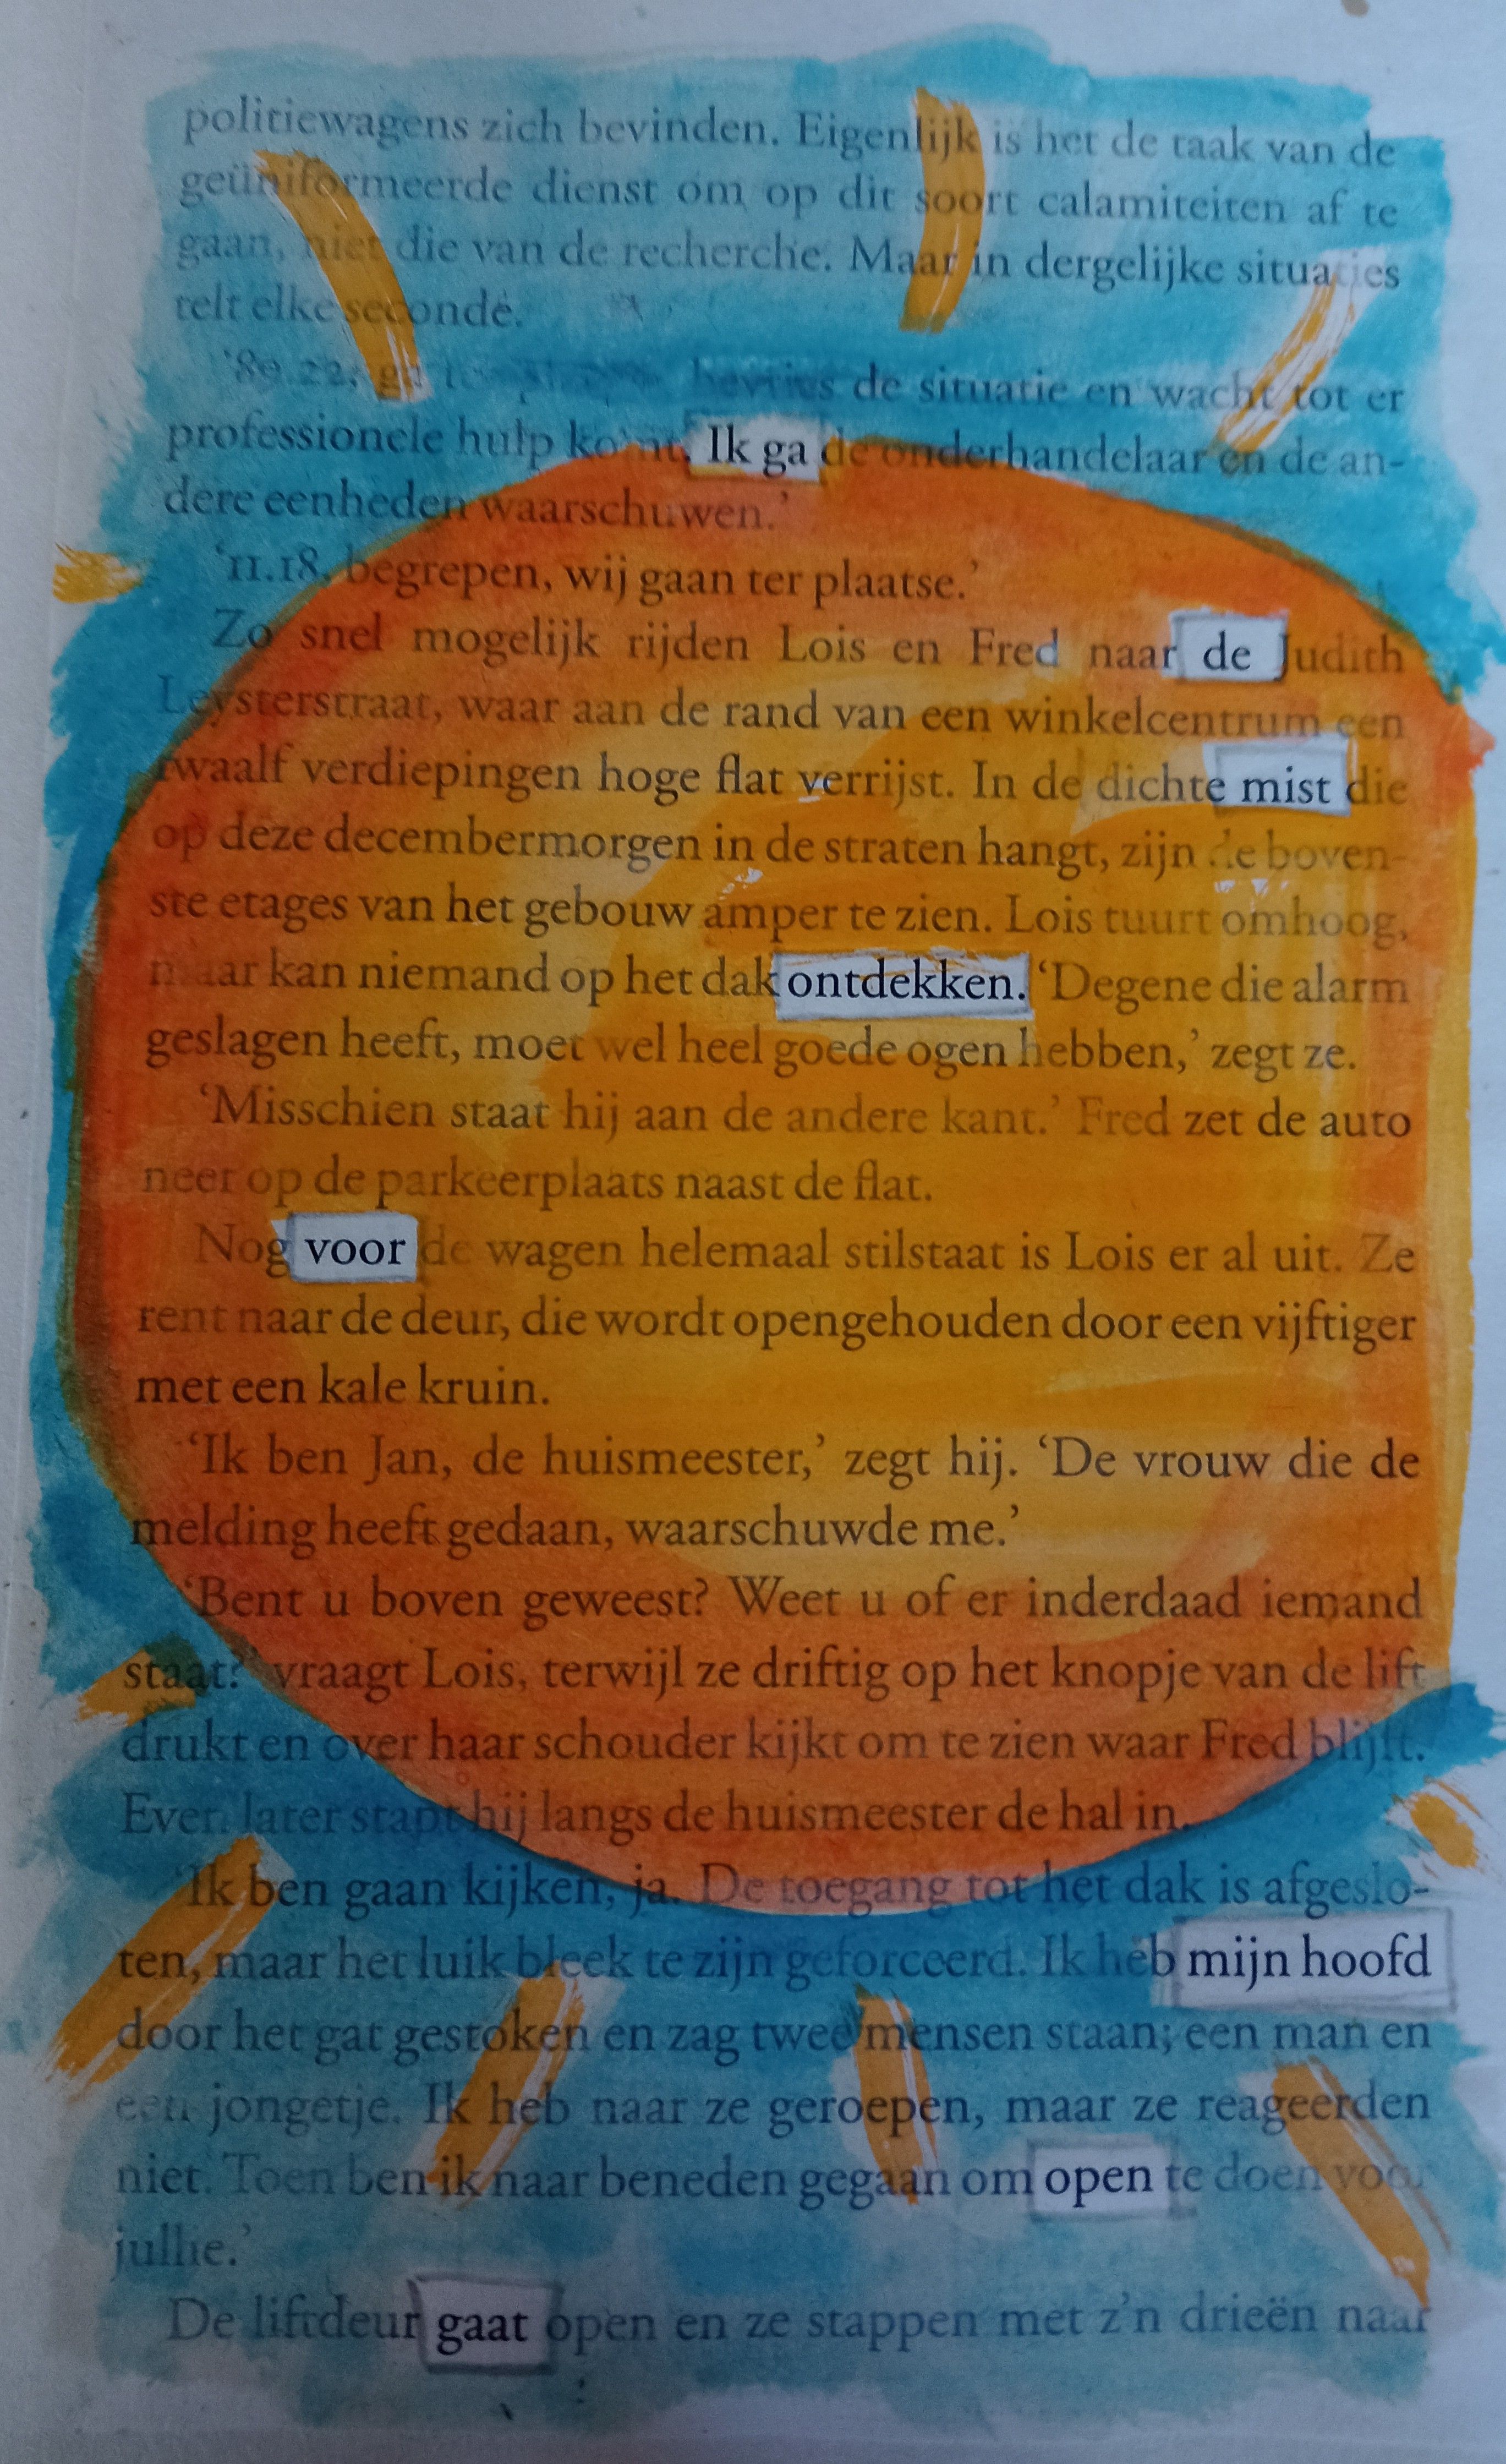 politiewagens zich bevinden. Eigenlijk is het de taak van de
geüniformeerde dienst om op dit soort calamiteiten af te
gaan, niet die van de recherche. Maar in dergelijke situaties
telt elke seconde.
'89.22, ga de situatie en wacht tot er
professionele hulp komt. Ik ga de onderhandelaar en de an-
dere eenheden waarschuwen.'
'11.18, begrepen, wij gaan ter plaatse.'
Zo snel mogelijk rijden Lois en Fred naar de Judith
Leysterstraat, waar aan de rand van een winkelcentrum een
twaalf verdiepingen hoge flat verrijst. In de dichte mist die
op deze decembermorgen in de straten hangt, zijn de boven-
ste etages van het gebouw amper te zien. Lois tuurt omhoog,
maar kan niemand op het dak ontdekken. 'Degene die alarm
geslagen heeft, moet wel heel goede ogen hebben,' zegt ze.
'Misschien staat hij aan de andere kant.' Fred zet de auto
neer op de parkeerplaats naast de flat.
Nog voor de wagen helemaal stilstaat is Lois er al uit. Ze
rent naar de deur, die wordt opengehouden door een vijftiger
met een kale kruin.
'Ik ben Jan, de huismeester,' zegt hij. 'De vrouw die de
melding heeft gedaan, waarschuwde me.'
'Bent u boven geweest? Weet u of er inderdaad iemand
staat?' vraagt Lois, terwijl ze driftig op het knopje van de lift
drukt en over haar schouder kijkt om te zien waar Fred blijft.
Even later stapt hij langs de huismeester de hal in.
'Ik ben gaan kijken, ja. De toegang tot het dak is afgeslo-
ten, maar het luik bleek te zijn geforceerd. Ik heb mijn hoofd
door het gat gestoken en zag twee mensen staan; een man en
een jongetje. Ik heb naar ze geroepen, maar ze reageerden
niet. Toen ben ik naar beneden gegaan om open te doen voor
jullie.'
De liftdeur gaat open en ze stappen met z'n drieën naar